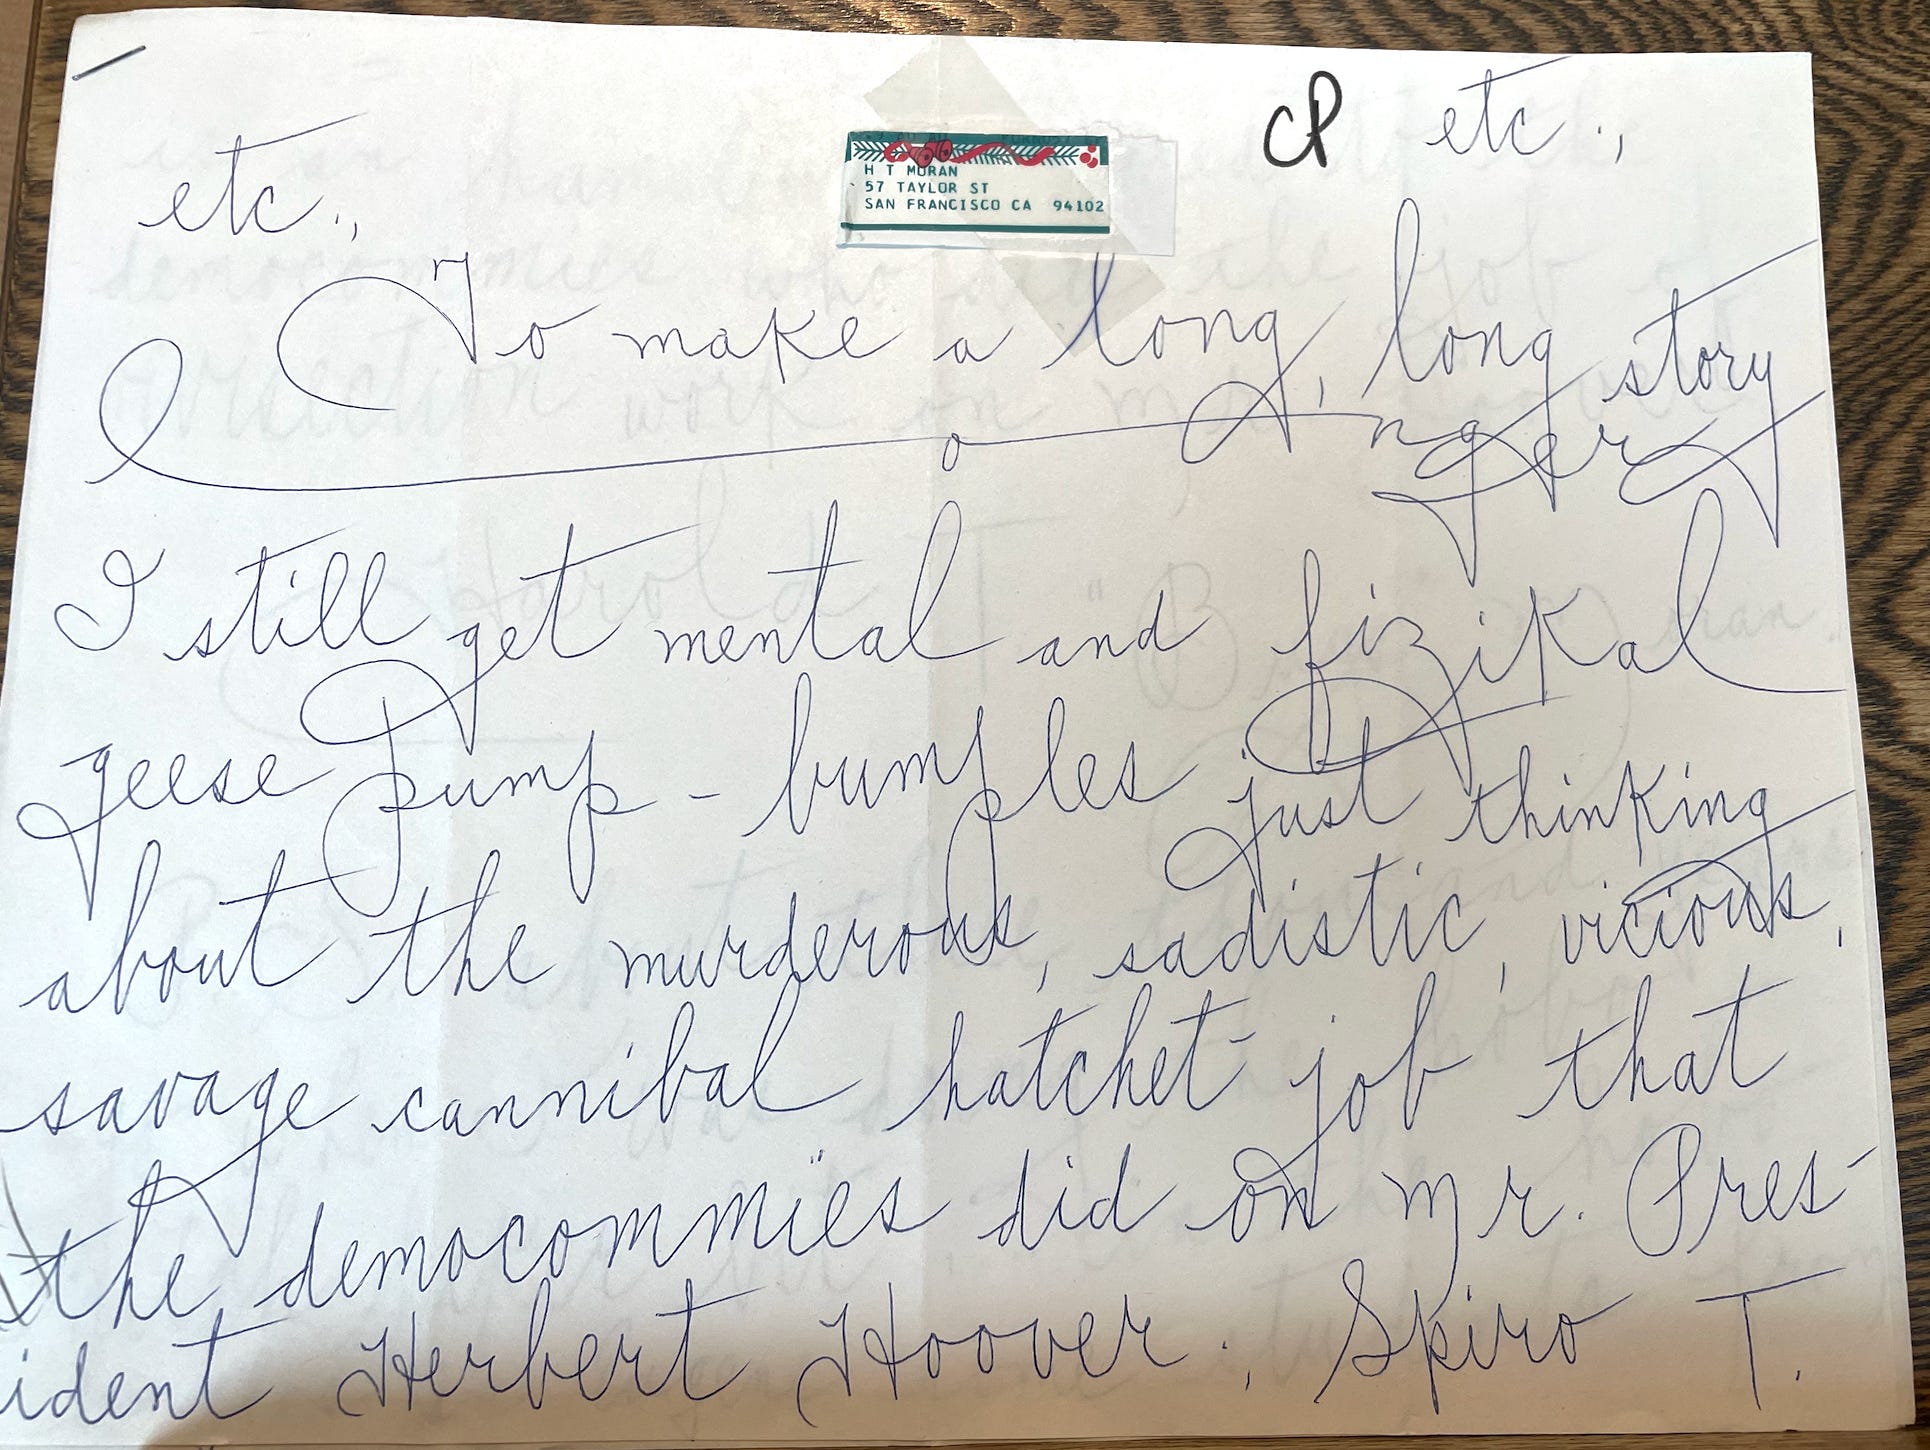 cP etc.,
etc.,
H T MORAN
57 TAYLOR ST
SAN FRANCISCO CA 94102
To make a long, long story
a longer
I still get mental and fizikal
geese pump-bumples just thinking
about the murderous, sadistic, vicious,
savage cannibal hatchet-job that
the democommies did on Mr. Pres-
ident Herbert Hoover; Spiro T.